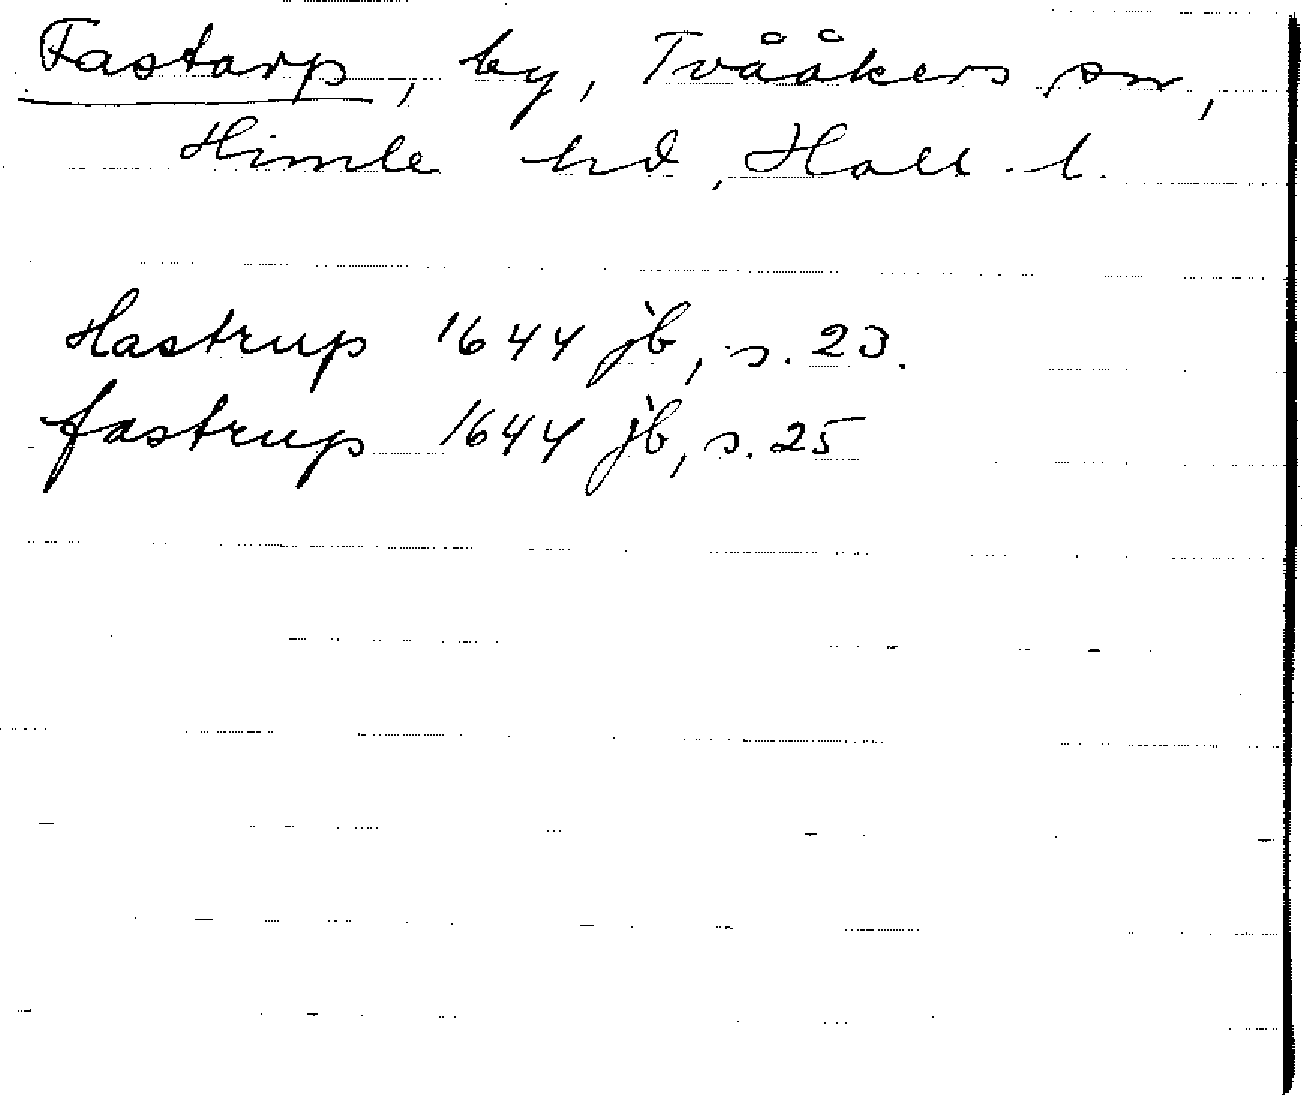 Fastarp, by, Tvååkers sn,
Himle hd, Hall. l.
Hastrup 1644 jb, s. 23.
fastrup 1644 jb, s. 25